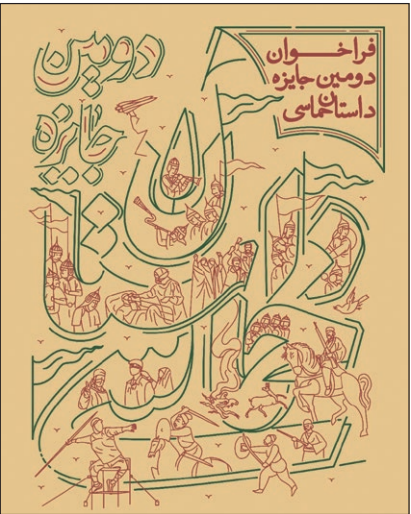 فراخوان
دومین جایزه
داستان حماسی
دومین
جایزه
داستان
حماسی